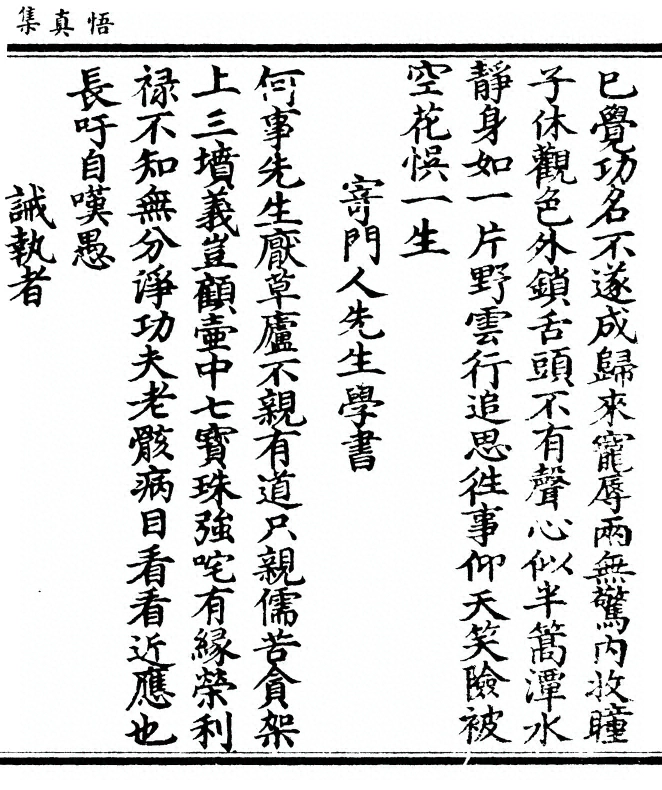 悟真集
已覺功名不遂成歸來寵辱兩無驚內收瞳
子休觀色外鎖舌頭不有聲心似半篙潭水
靜身如一片野雲行追思徃事仰天笑險被
空花悞一生
寄門人先生學書
何事先生厭草廬不親有道只親儒苦貪架
上三墳義豈顧壷中七寳珠強咤有緣榮利
禄不知無分諍功夫老骸病目看看近應也
長吁自嘆愚
誡執者